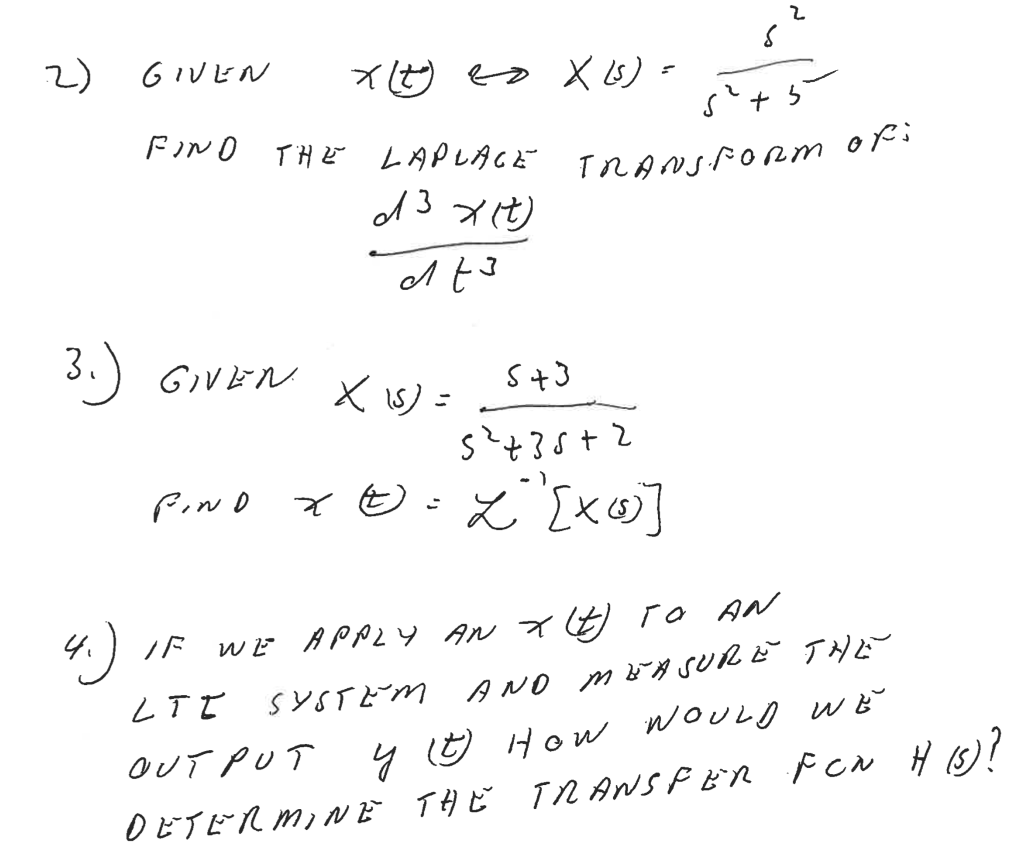 2) GIVEN x(t) ↔ X(s) = s²/(s²+5)
FIND THE LAPLACE TRANSFORM OF:
d³x(t)/dt³
3.) GIVEN X(s) = (s+3)/(s²+3s+2)
FIND x(t) = ℒ⁻¹[X(s)]
4.) IF WE APPLY AN x(t) TO AN
LTI SYSTEM AND MEASURE THE
OUTPUT y(t) HOW WOULD WE
DETERMINE THE TRANSFER FCN H(s)?